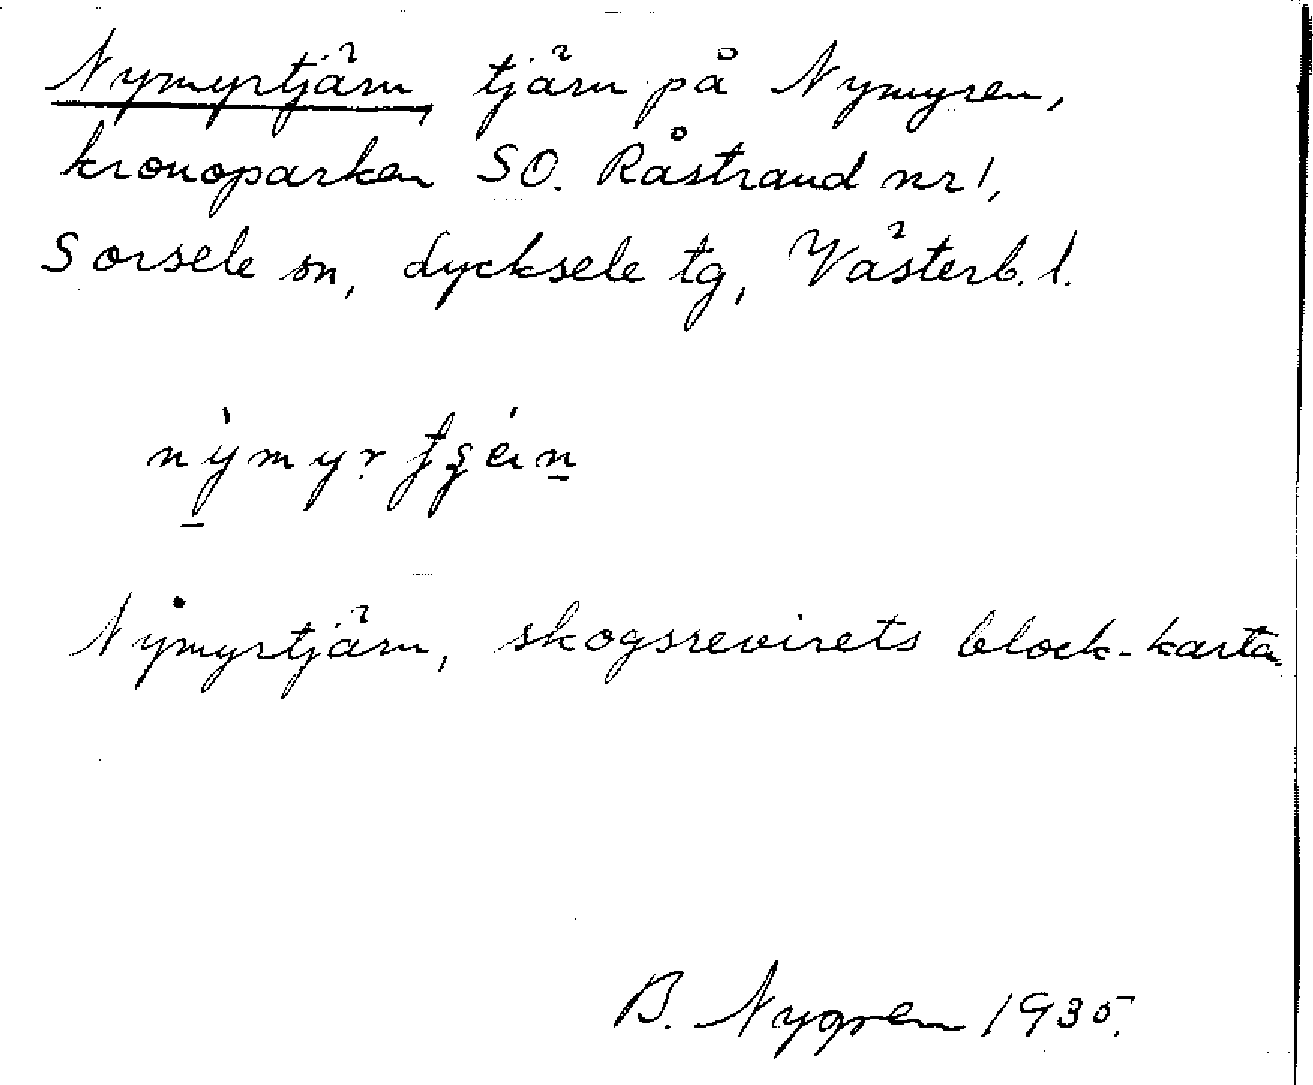 Nymyrtjärn, tjärn på Nymyren,
kronoparken SO. Råstrand nr 1,
Sorsele sn, Lycksele tg, Västerb. l.
Nymyrtjärn, skogsrevirets block-karta
B. Nygren 1935.